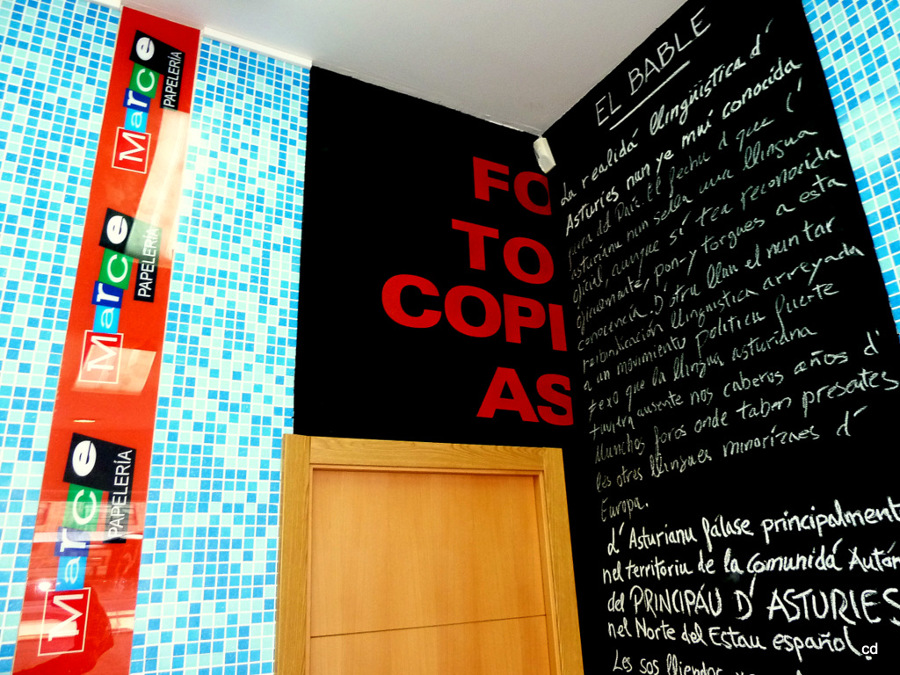 Marce
PAPELERÍA
Marce
PAPELERÍA
Marce
PAPELERÍA
FO
TO
COPI
AS
EL BABLE
La realidá llingüística d'
Asturies nun ye mui conocida
fuera del País. El fechu d que l'
asturianu nun seba una llingua
oficial, aunque sí tea reconocida
oficialmente, pon-y torgues a esta
conocencia. D'otru llau el nun tar
reibindicación llingüística arreyada
a un movimientu políticu fuerte
fexo que la llingua asturiana
tuviera ausente nos caberos años d'
munchos foros onde taben presentes
les otres llingues minorizaes d'
Europa.
d'Asturianu fálase principalment
nel territoriu de la Comunidá Autón
del PRINCIPÁU D'ASTURIES
nel Norte del Estau español.
Les sos llendes
cd